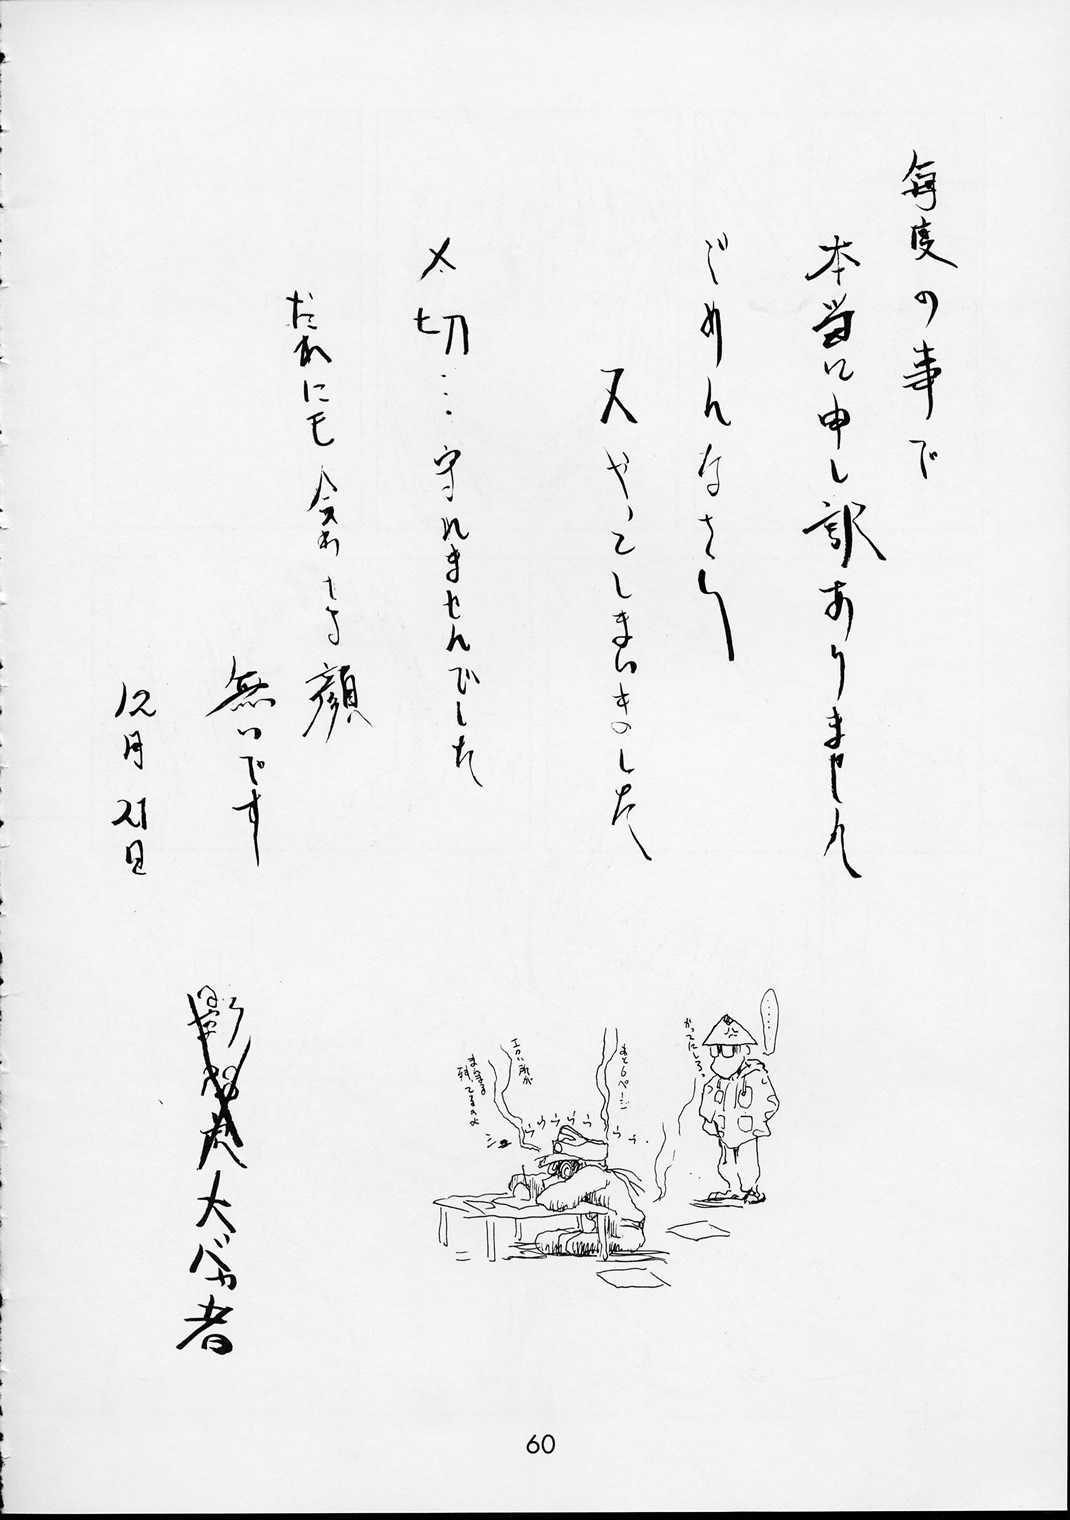 毎度の事で
本当に申し訳ありません
ごめんなさい
又やってしまいましした
〆切…守れませんでした
だれにも会わせる顔
無いです
12月21日
大バカ者
……
かってにしろ。
あと6ページ
ウウウウウウウ
エロい所が
まだまる
残ってるのよ
60